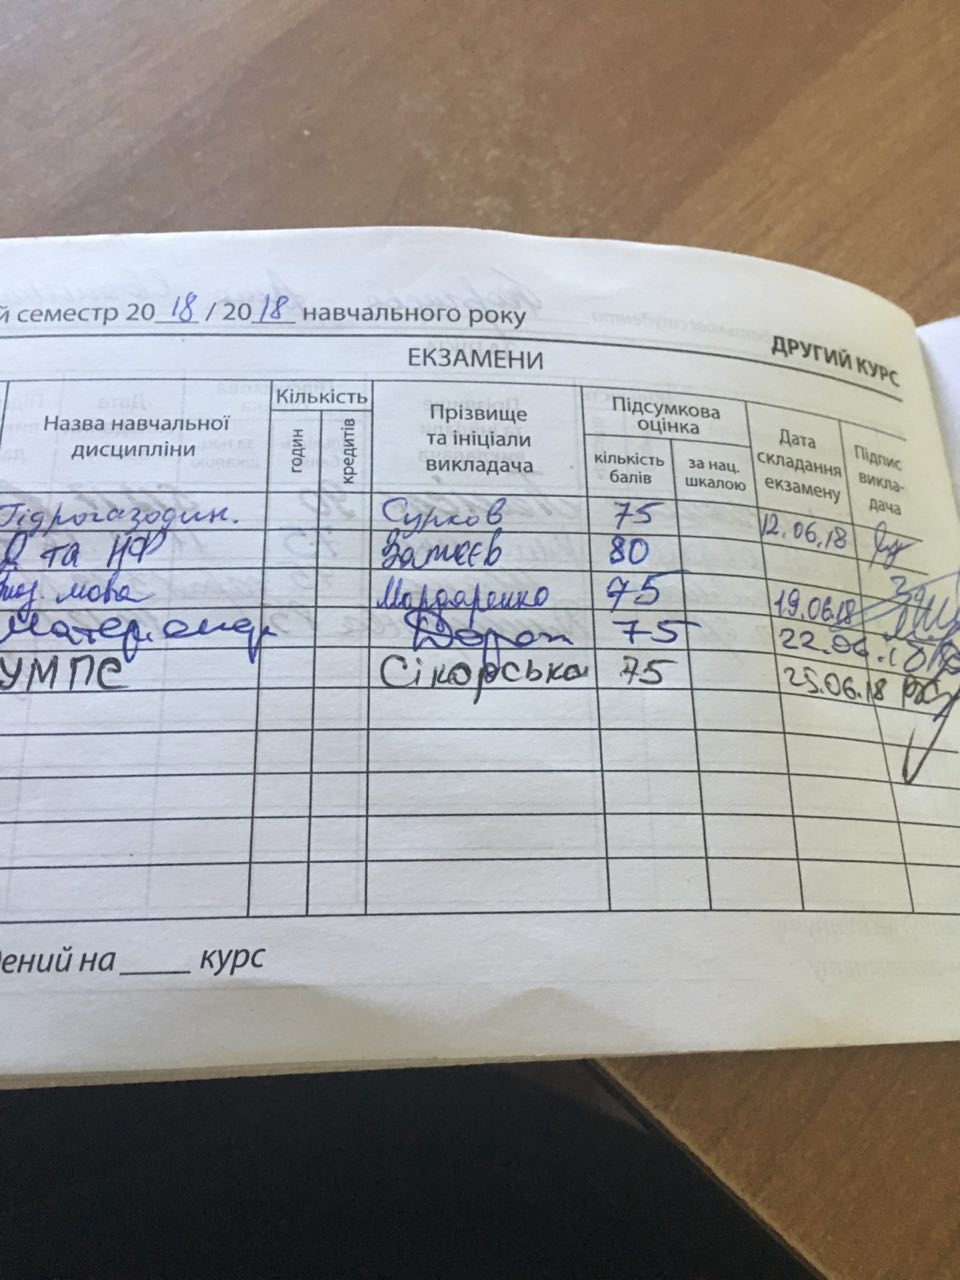 й семестр 20 18 / 20 18 навчального року
ДРУГИЙ КУРС
ЕКЗАМЕНИ
Назва навчальної дисципліни
Кількість
годин
кредитів
Прізвище та ініціали викладача
Підсумкова оцінка
кількість балів
за нац. шкалою
Дата складання екзамену
Підпис викла-дача
Гідрогазодин. Сурков 75 12.06.18
та НФ 80
мова Мардаренко 75 19.06.18
75 22.06.18
УМПС Сікорська 75 25.06.18
дений на ____ курс